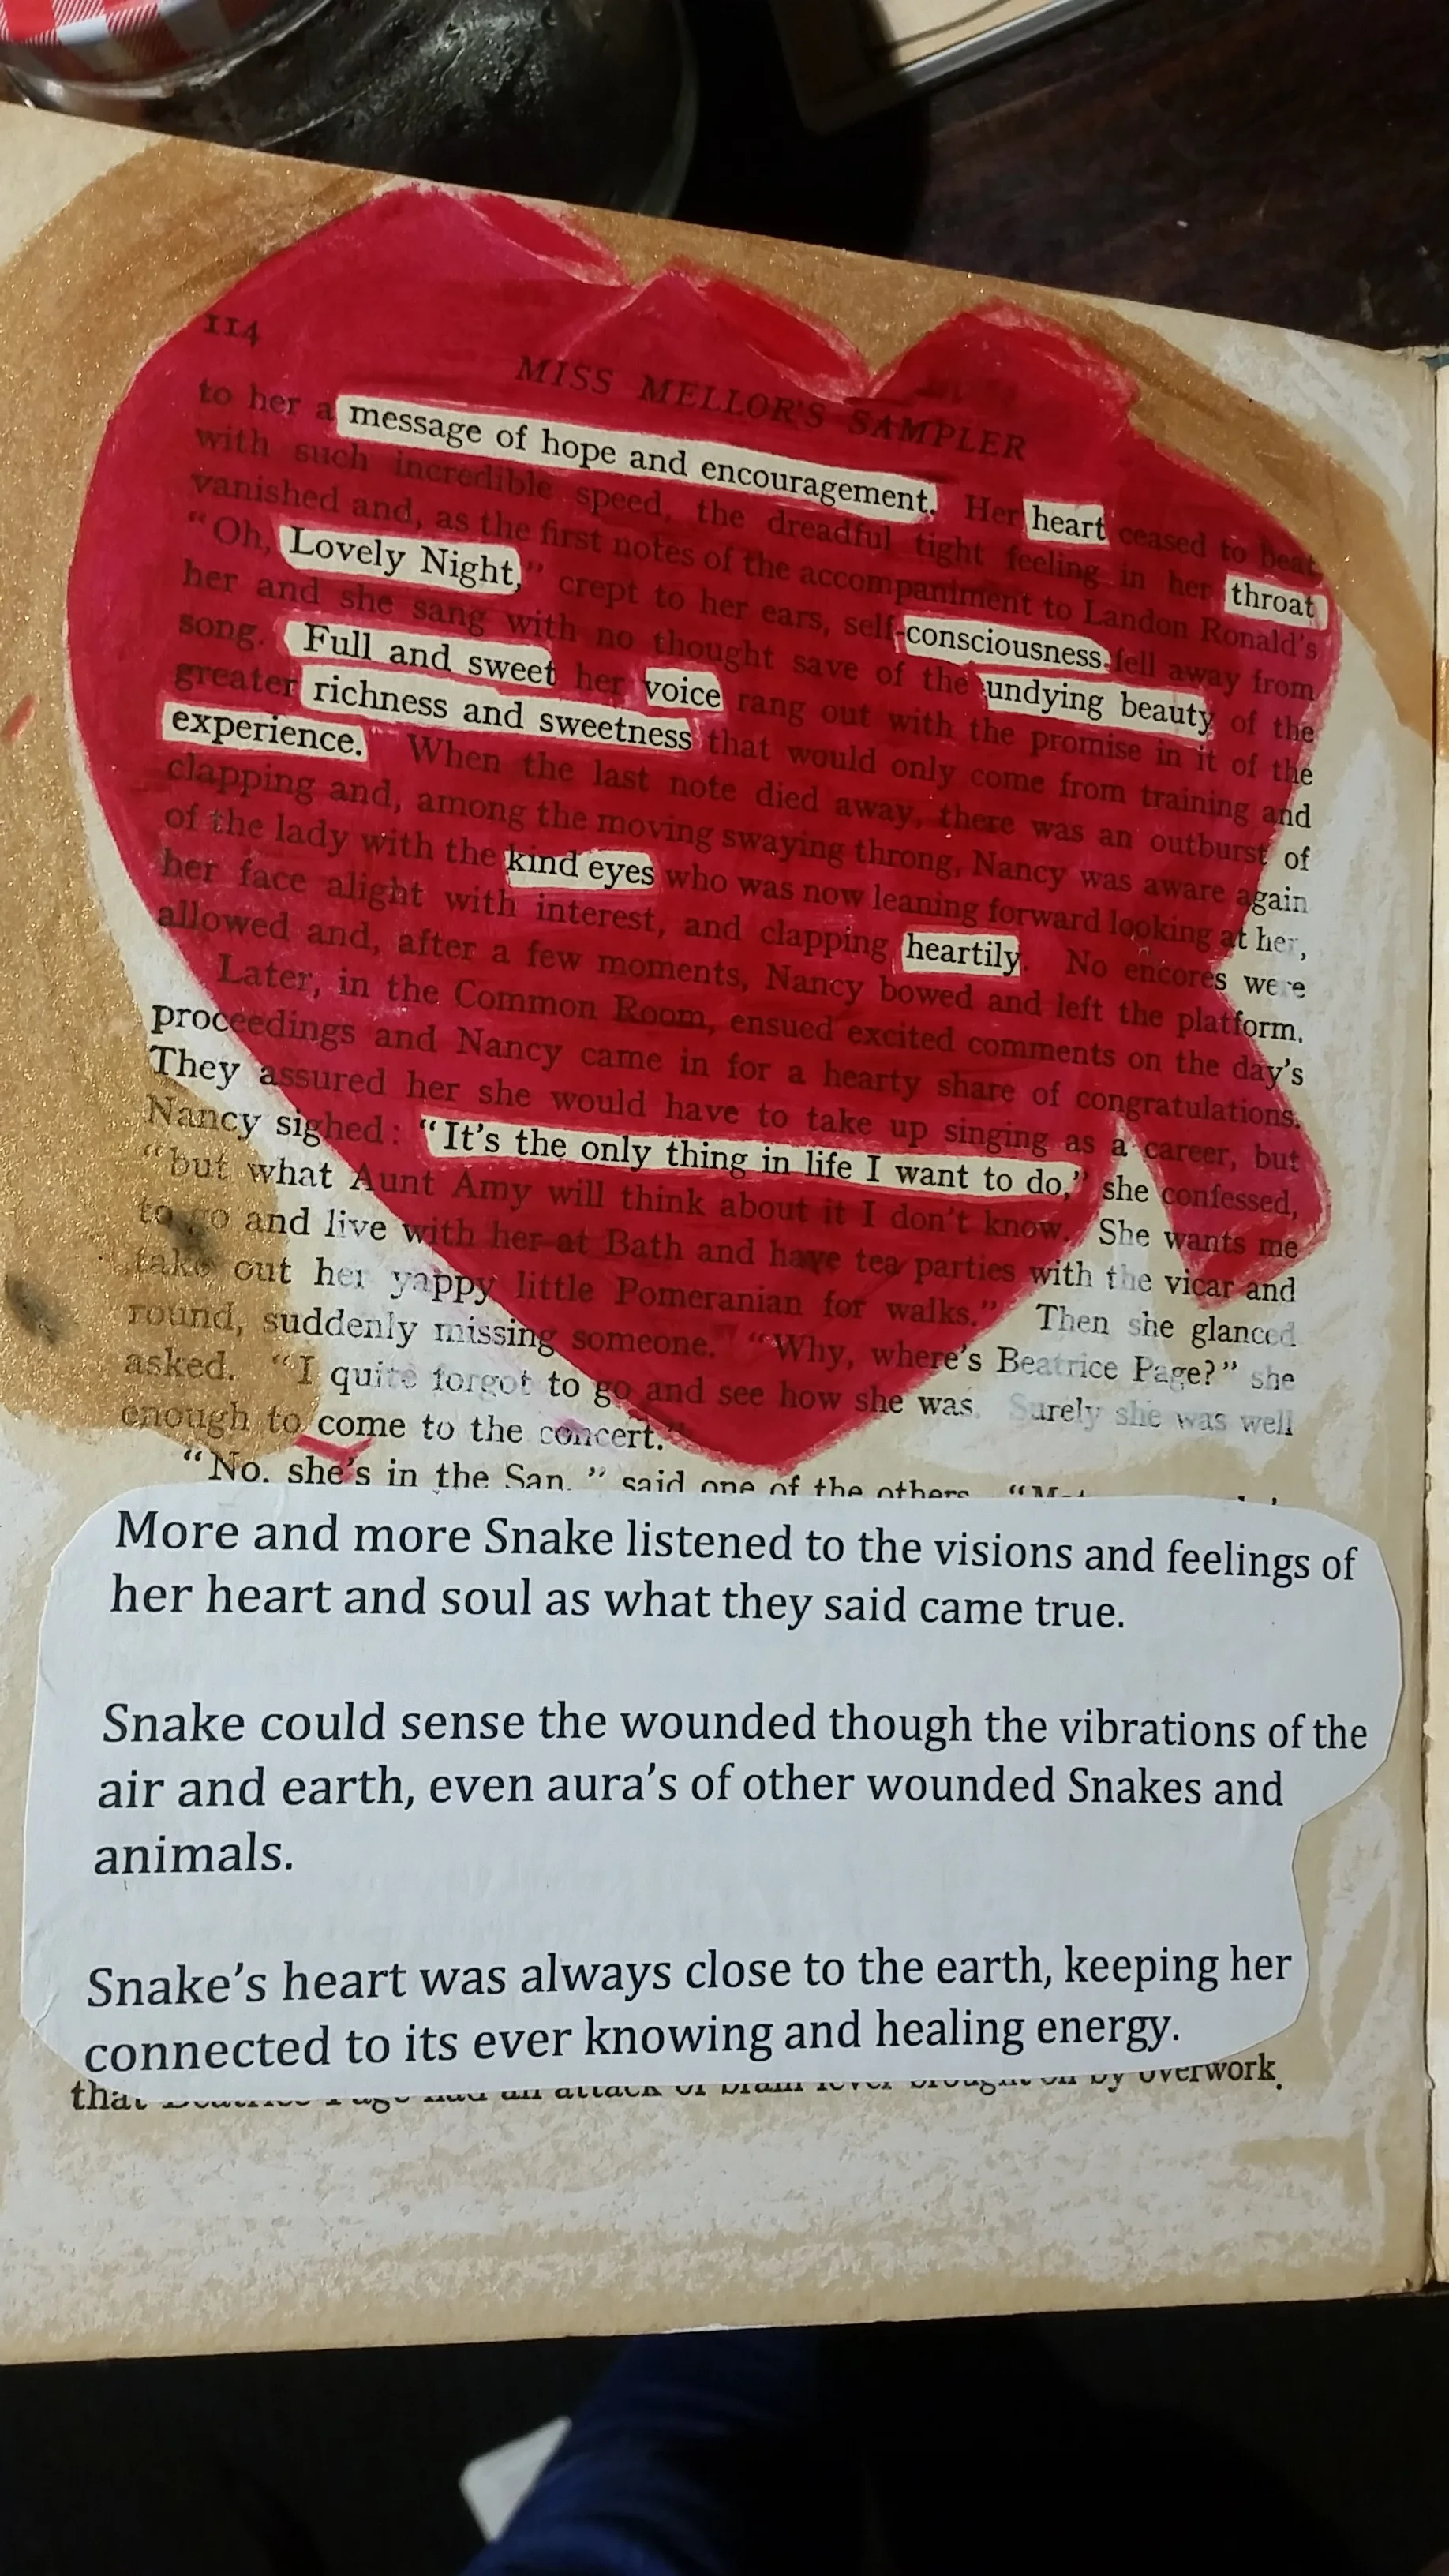 114
MISS MELLOR'S SAMPLER
to her a message of hope and encouragement. Her heart ceased to beat
with such incredible speed, the dreadful tight feeling in her throat
vanished and, as the first notes of the accompaniment to Landon Ronald's
“Oh, Lovely Night,” crept to her ears, self-consciousness fell away from
her and she sang with no thought save of the undying beauty of the
song. Full and sweet her voice rang out with the promise in it of the
greater richness and sweetness that would only come from training and
experience. When the last note died away, there was an outburst of
clapping and, among the moving swaying throng, Nancy was aware again
of the lady with the kind eyes who was now leaning forward looking at her,
her face alight with interest, and clapping heartily. No encores were
allowed and, after a few moments, Nancy bowed and left the platform.
Later, in the Common Room, ensued excited comments on the day's
proceedings and Nancy came in for a hearty share of congratulations.
They assured her she would have to take up singing as a career, but
Nancy sighed: “It's the only thing in life I want to do,” she confessed,
“but what Aunt Amy will think about it I don't know. She wants me
to go and live with her at Bath and have tea parties with the vicar and
take out her yappy little Pomeranian for walks.” Then she glanced
round, suddenly missing someone. “Why, where's Beatrice Page?” she
asked. “I quite forgot to go and see how she was. Surely she was well
enough to come to the concert.”
“No, she's in the San,” said one of the others.
More and more Snake listened to the visions and feelings of
her heart and soul as what they said came true.
Snake could sense the wounded though the vibrations of the
air and earth, even aura's of other wounded Snakes and
animals.
Snake's heart was always close to the earth, keeping her
connected to its ever knowing and healing energy.
that Beatrice Page had an attack of brain fever brought on by overwork.